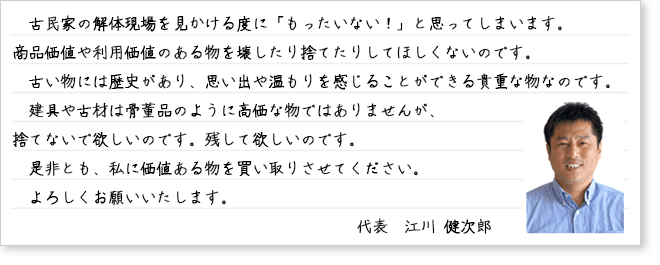 古民家の解体現場を見かける度に「もったいない！」と思ってしまいます。
商品価値や利用価値のある物を壊したり捨てたりしてほしくないのです。
古い物には歴史があり、思い出や温もりを感じることができる貴重な物なのです。
建具や古材は骨董品のように高価な物ではありませんが、
捨てないで欲しいのです。残して欲しいのです。
是非とも、私に価値ある物を買い取りさせてください。
よろしくお願いいたします。
代表　江川 健次郎